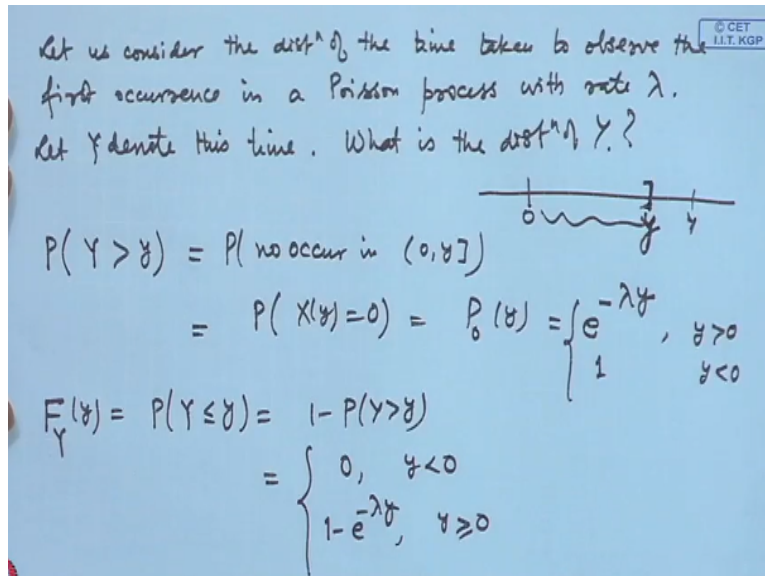 © CET
I.I.T. KGP
Let us consider the distⁿ of the time taken to observe the
first occurrence in a Poisson process with rate λ.
Let Y denote this time. What is the distⁿ of Y.?
0 y Y
P(Y > y) = P( no occur in (0, y])
= P( X(y) = 0) = P₀(y) = { e^{-λy}, y > 0
1 y < 0
F_Y(y) = P(Y ≤ y) = 1 - P(Y > y)
= { 0, y < 0
1 - e^{-λy}, y ≥ 0